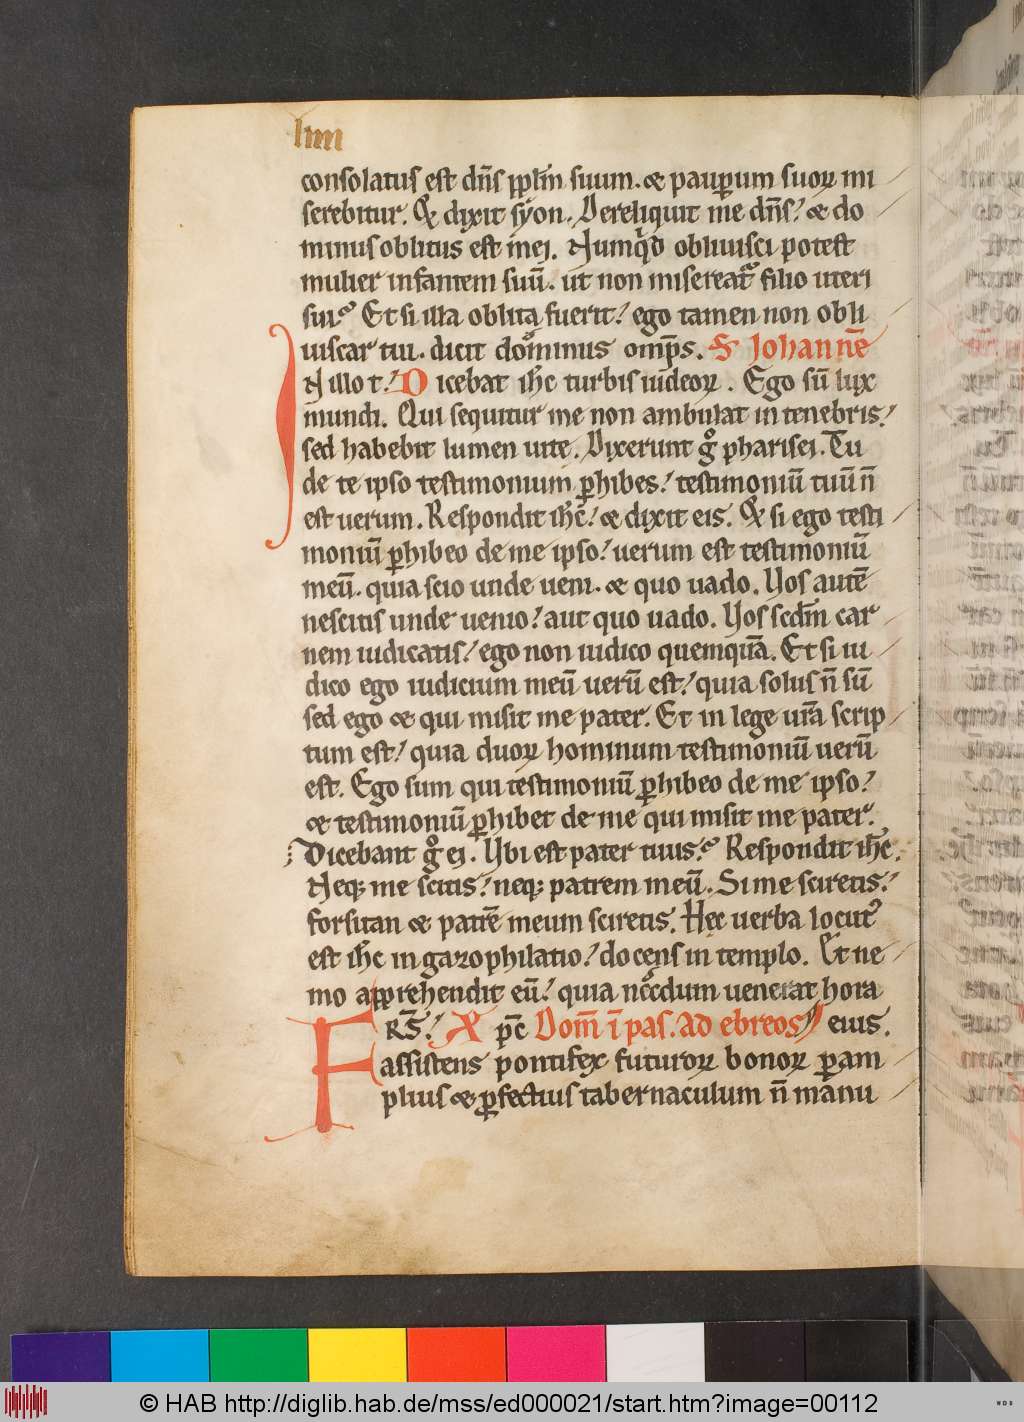 liiii
consolatus est dn̄s pplm̄ suum. ⁊ paup̱um suoꝝ mi
serebitur. Et dixit syon. Dereliquit me dn̄s! ⁊ do
minus oblitus est mei. Numqͥd obliuisci potest
mulier infantem suū. ut non misereatᷣ filio uteri
sui? Et si illa oblita fuerit! ego tamen non obli
uiscar tui. dicit dominus omp̄s. S Johannē
N illo t! Dicebat ih̄c turbis iudeoꝝ. Ego sū lux
mundi. Qui sequitur me non ambulat in tenebris!
sed habebit lumen uite. Dixerunt gͦ pharisei. Tu
de te ipso testimonium ꝑhibes! testimoniū tuū n̄
est uerum. Respondit ih̄c! ⁊ dixit eis. Et si ego testi
moniū ꝑhibeo de me ipso! uerum est testimoniū
meū. quia scio unde ueni. ⁊ quo uado. Uos autē
nescitis unde uenio! aut quo uado. Uos scdm̄ car
nem iudicatis! ego non iudico quemquā. Et si iu
dico ego iudicium meū uerū est! quia solus n̄ sū
sed ego ⁊ qui misit me pater. Et in lege ur̄a scrip
tum est! quia duoꝝ hominum testimoniū uerū
est. Ego sum qui testimoniū ꝑhibeo de me ipso!
⁊ testimoniū ꝑhibet de me qui misit me pater.
Dicebant gͦ ei. Ubi est pater tuus? Respondit ih̄c.
Neqꝫ me scitis! neqꝫ patrem meū. Si me sciretis!
forsitan ⁊ patrē meum sciretis. Hec uerba locutꝰ
est ih̄c in gazophilatio! docens in templo. Et ne
mo apprehendit eū! quia necdum uenerat hora
FRS̄! Xp̄c Dom̄ ī pas. ad ebreos eius.
assistens pontifex futuroꝝ bonoꝝ ꝑ am
plius ⁊ ꝑfectius tabernaculum n̄ manu
© HAB http://diglib.hab.de/mss/ed000021/start.htm?image=00112